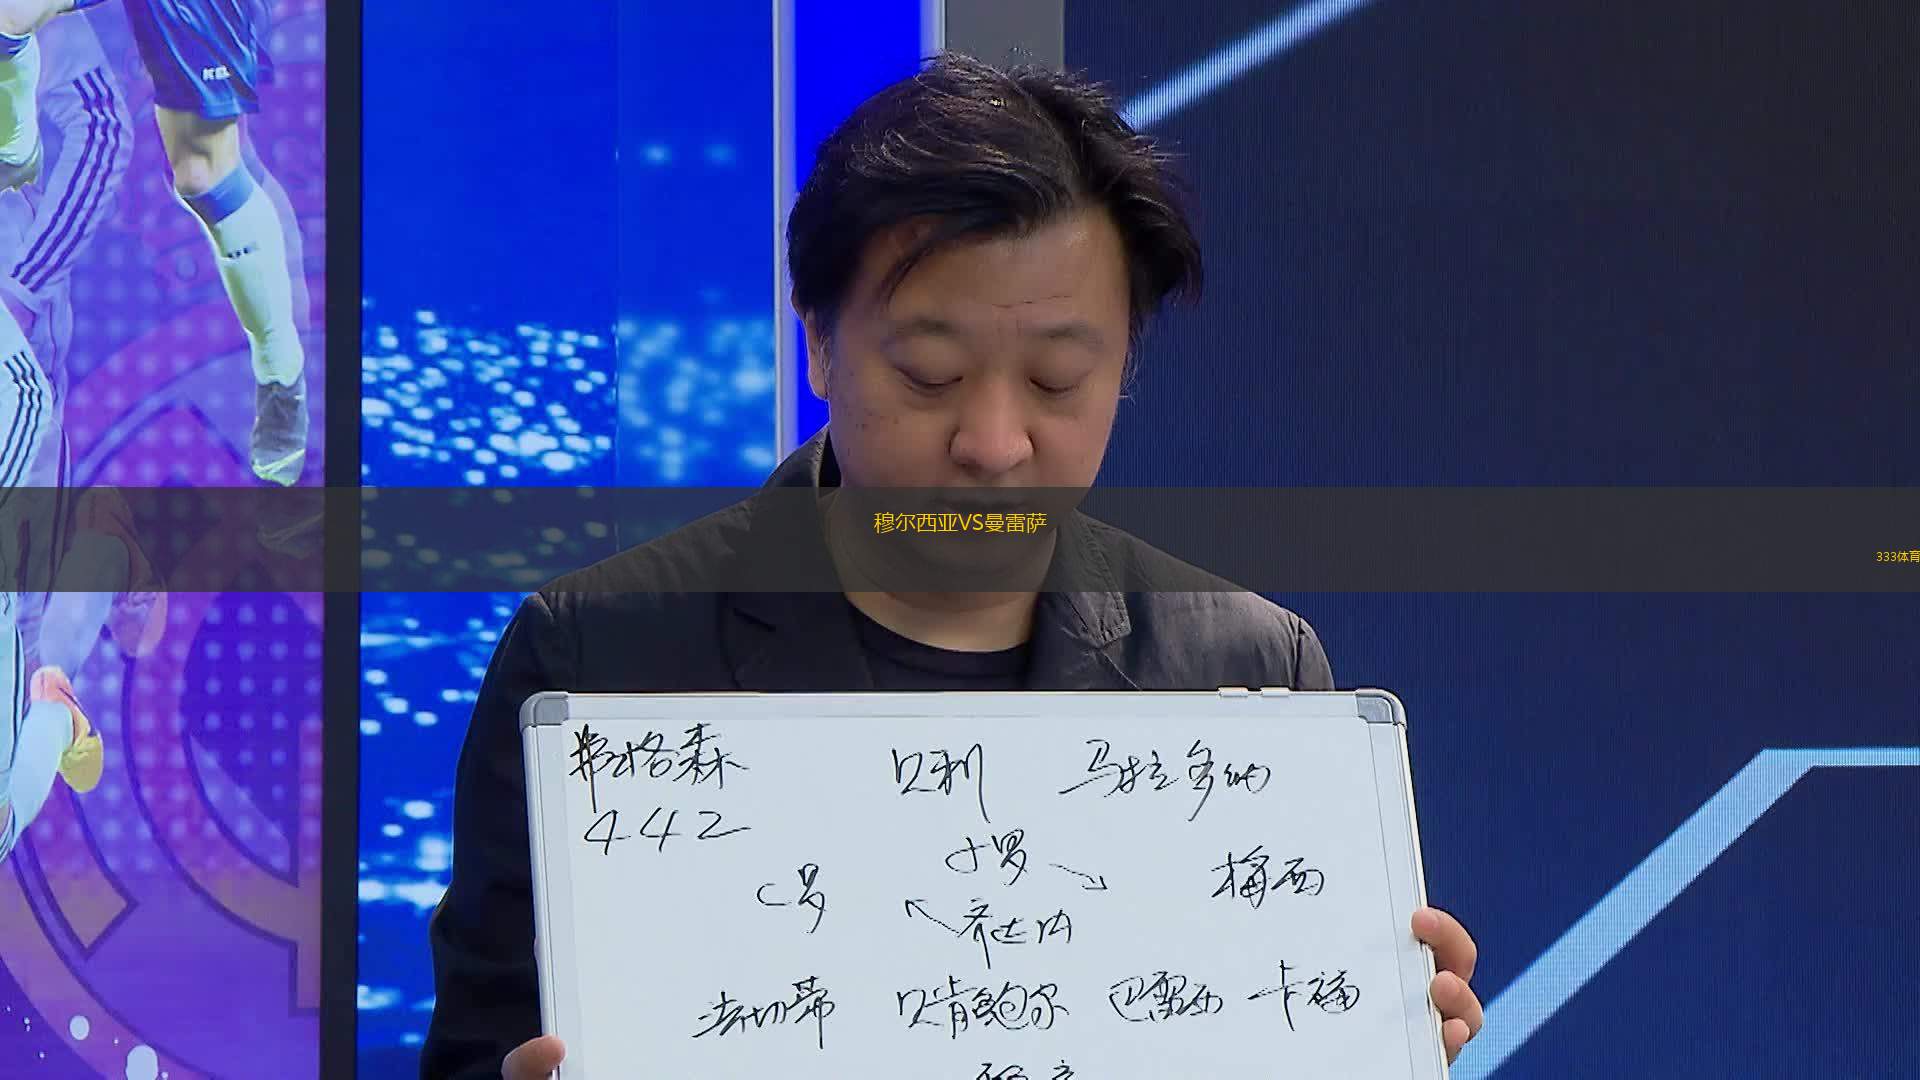 穆尔西亚VS曼雷萨
333体育
弗格森 贝利 马拉多纳
442
小罗
C罗 梅西
齐达内
法切蒂 贝肯鲍尔 巴雷西 卡福